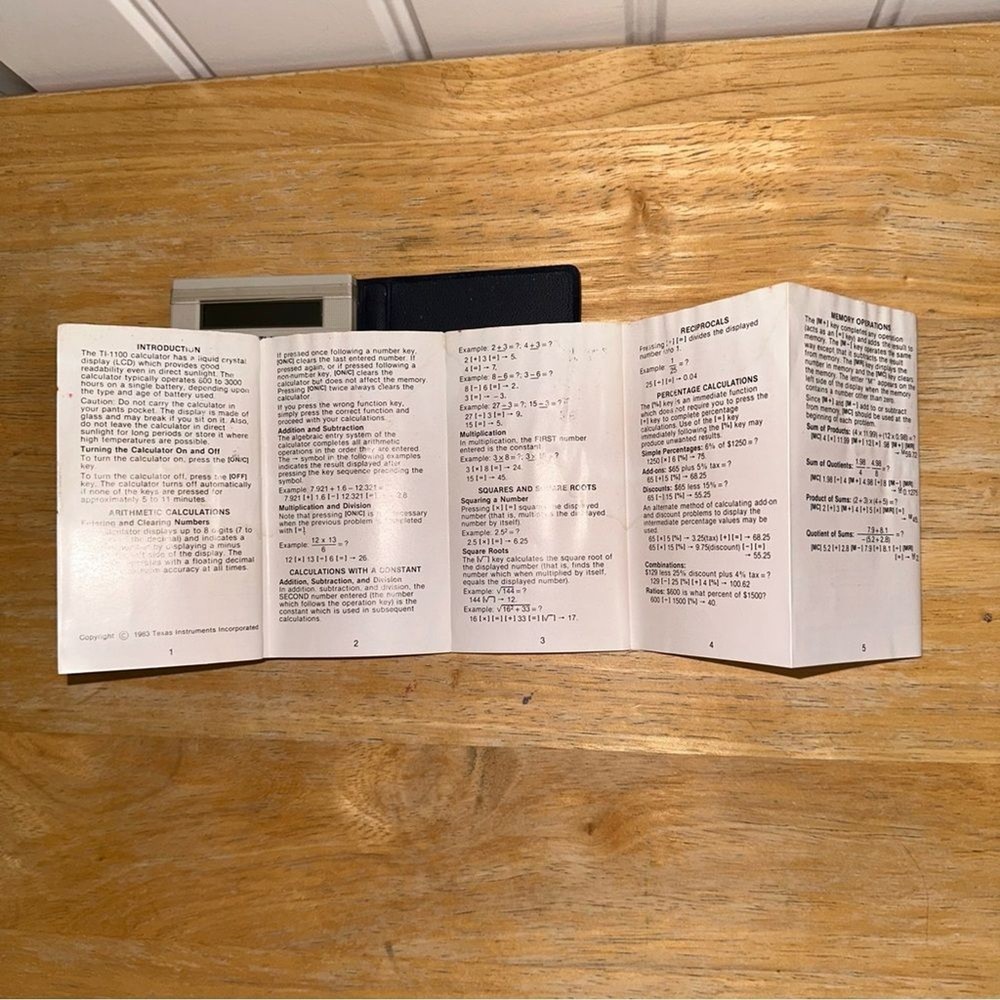 INTRODUCTION
The TI-1100 calculator has a liquid crystal
display (LCD) which provides good
readability even in direct sunlight. The
calculator typically operates 600 to 3000
hours on a single battery, depending upon
the type and age of battery used.
Caution: Do not carry the calculator in
your pants pocket. The display is made of
glass and may break if you sit on it. Also,
do not leave the calculator in direct
sunlight for long periods or store it where
high temperatures are possible.
Turning the Calculator On and Off
To turn the calculator on, press the [ON/C]
key.
To turn the calculator off, press the [OFF]
key. The calculator turns off automatically
if none of the keys are pressed for
approximately 5 to 11 minutes.
ARITHMETIC CALCULATIONS
Entering and Clearing Numbers
displays up to 8 digits (7 to
decimal) and indicates a
by displaying a minus
side of the display. The
with a floating decimal
accuracy at all times.
Copyright © 1983 Texas Instruments Incorporated
1
If pressed once following a number key,
[ON/C] clears the last entered number. If
pressed again, or if pressed following a
non-number key, [ON/C] clears the
calculator but does not affect the memory.
Pressing [ON/C] twice always clears the
calculator.
If you press the wrong function key,
simply press the correct function and
proceed with your calculations.
Addition and Subtraction
The algebraic entry system of the
calculator completes all arithmetic
operations in the order they are entered.
The → symbol in the following examples
indicates the result displayed after
pressing the key sequence preceding the
symbol.
Example: 7.921 + 1.6 – 12.321 =
7.921 [+] 1.6 [–] 12.321 [=] 2.8
Multiplication and Division
Note that pressing [ON/C] is necessary
when the previous problem completed
with [=].
Example: 12 × 13
6
12 [×] 13 [÷] 6 [=] → 26.
CALCULATIONS WITH A CONSTANT
Addition, Subtraction, and Division
In addition, subtraction, and division, the
SECOND number entered (the number
which follows the operation key) is the
constant which is used in subsequent
calculations.
2
Example: 2 + 3 = ?; 4 + 3 = ?
2 [+] 3 [=] → 5.
4 [=] → 7.
Example: 8 – 6 = ?; 3 – 6 = ?
8 [–] 6 [=] → 2.
3 [=] → –3.
Example: 27 ÷ 3 = ?; 15 ÷ 3 = ?
27 [÷] 3 [=] → 9.
15 [=] → 5.
Multiplication
In multiplication, the FIRST number
entered is the constant.
Example: 3 × 8 = ?; 3 ×
3 [×] 8 [=] → 24.
15 [=] → 45.
SQUARES AND SQUARE ROOTS
Squaring a Number
Pressing [×] [=] squares the displayed
number (that is, multiplies the displayed
number by itself).
Example: 2.5² = ?
2.5 [×] [=] → 6.25
Square Roots
The [√‾] key calculates the square root of
the displayed number (that is, finds the
number which when multiplied by itself,
equals the displayed number).
Example: √144 = ?
144 [√‾] → 12.
Example: √16² + 33 = ?
16 [×] [=] [+] 33 [=] [√‾] → 17.
3
RECIPROCALS
Pressing [÷] [=] divides the displayed
number into 1.
Example: 1/25 = ?
25 [÷] [=] → 0.04
PERCENTAGE CALCULATIONS
The [%] key is an immediate function
which does not require you to press the
[=] key to complete percentage
calculations. Use of the [=] key
immediately following the [%] key may
produce unwanted results.
Simple Percentages: 6% of $1250 = ?
1250 [×] 6 [%] → 75.
Add-ons: $65 plus 5% tax = ?
65 [+] 5 [%] → 68.25
Discounts: $65 less 15% = ?
65 [–] 15 [%] → 55.25
An alternate method of calculating add-on
and discount problems to display the
intermediate percentage values may be
used.
65 [×] 5 [%] → 3.25(tax) [+] [=] → 68.25
65 [×] 15 [%] → 9.75(discount) [–] [=]
→ 55.25
Combinations:
$129 less 25% discount plus 4% tax = ?
129 [–] 25 [%] [+] 4 [%] → 100.62
Ratios: $600 is what percent of $1500?
600 [÷] 1500 [%] → 40.
4
MEMORY OPERATIONS
The [M+] key completes any operation
(acts as an [=] key) and adds the result to
memory. The [M–] key operates the same
way except that it subtracts the result
from memory. The [MR] key displays the
number in memory and the [MC] key clears
the memory. The letter "M" appears on the
left side of the display when the memory
contains a number other than zero.
Since [M+] and [M–] add to or subtract
from memory, [MC] should be used at the
beginning of each problem.
Sum of Products: (4 × 11.99) + (12 × 0.98) = ?
[MC] 4 [×] 11.99 [M+] 12 [×] .98 [M+] [MR]
Sum of Quotients: 1.98/4 + 4.98/8 = ?
[MC] 1.98 [÷] 4 [M+] 4.98 [÷] 8 [M+] [MR]
Product of Sums: (2 + 3) × (4 + 5) = ?
[MC] 2 [+] 3 [M+] 4 [+] 5 [×] [MR] [=]
Quotient of Sums: 7.9 + 8.1 / (5.2 + 2.8) = ?
[MC] 5.2 [+] 2.8 [M+] 7.9 [+] 8.1 [÷] [MR]
[=] → 2.
5